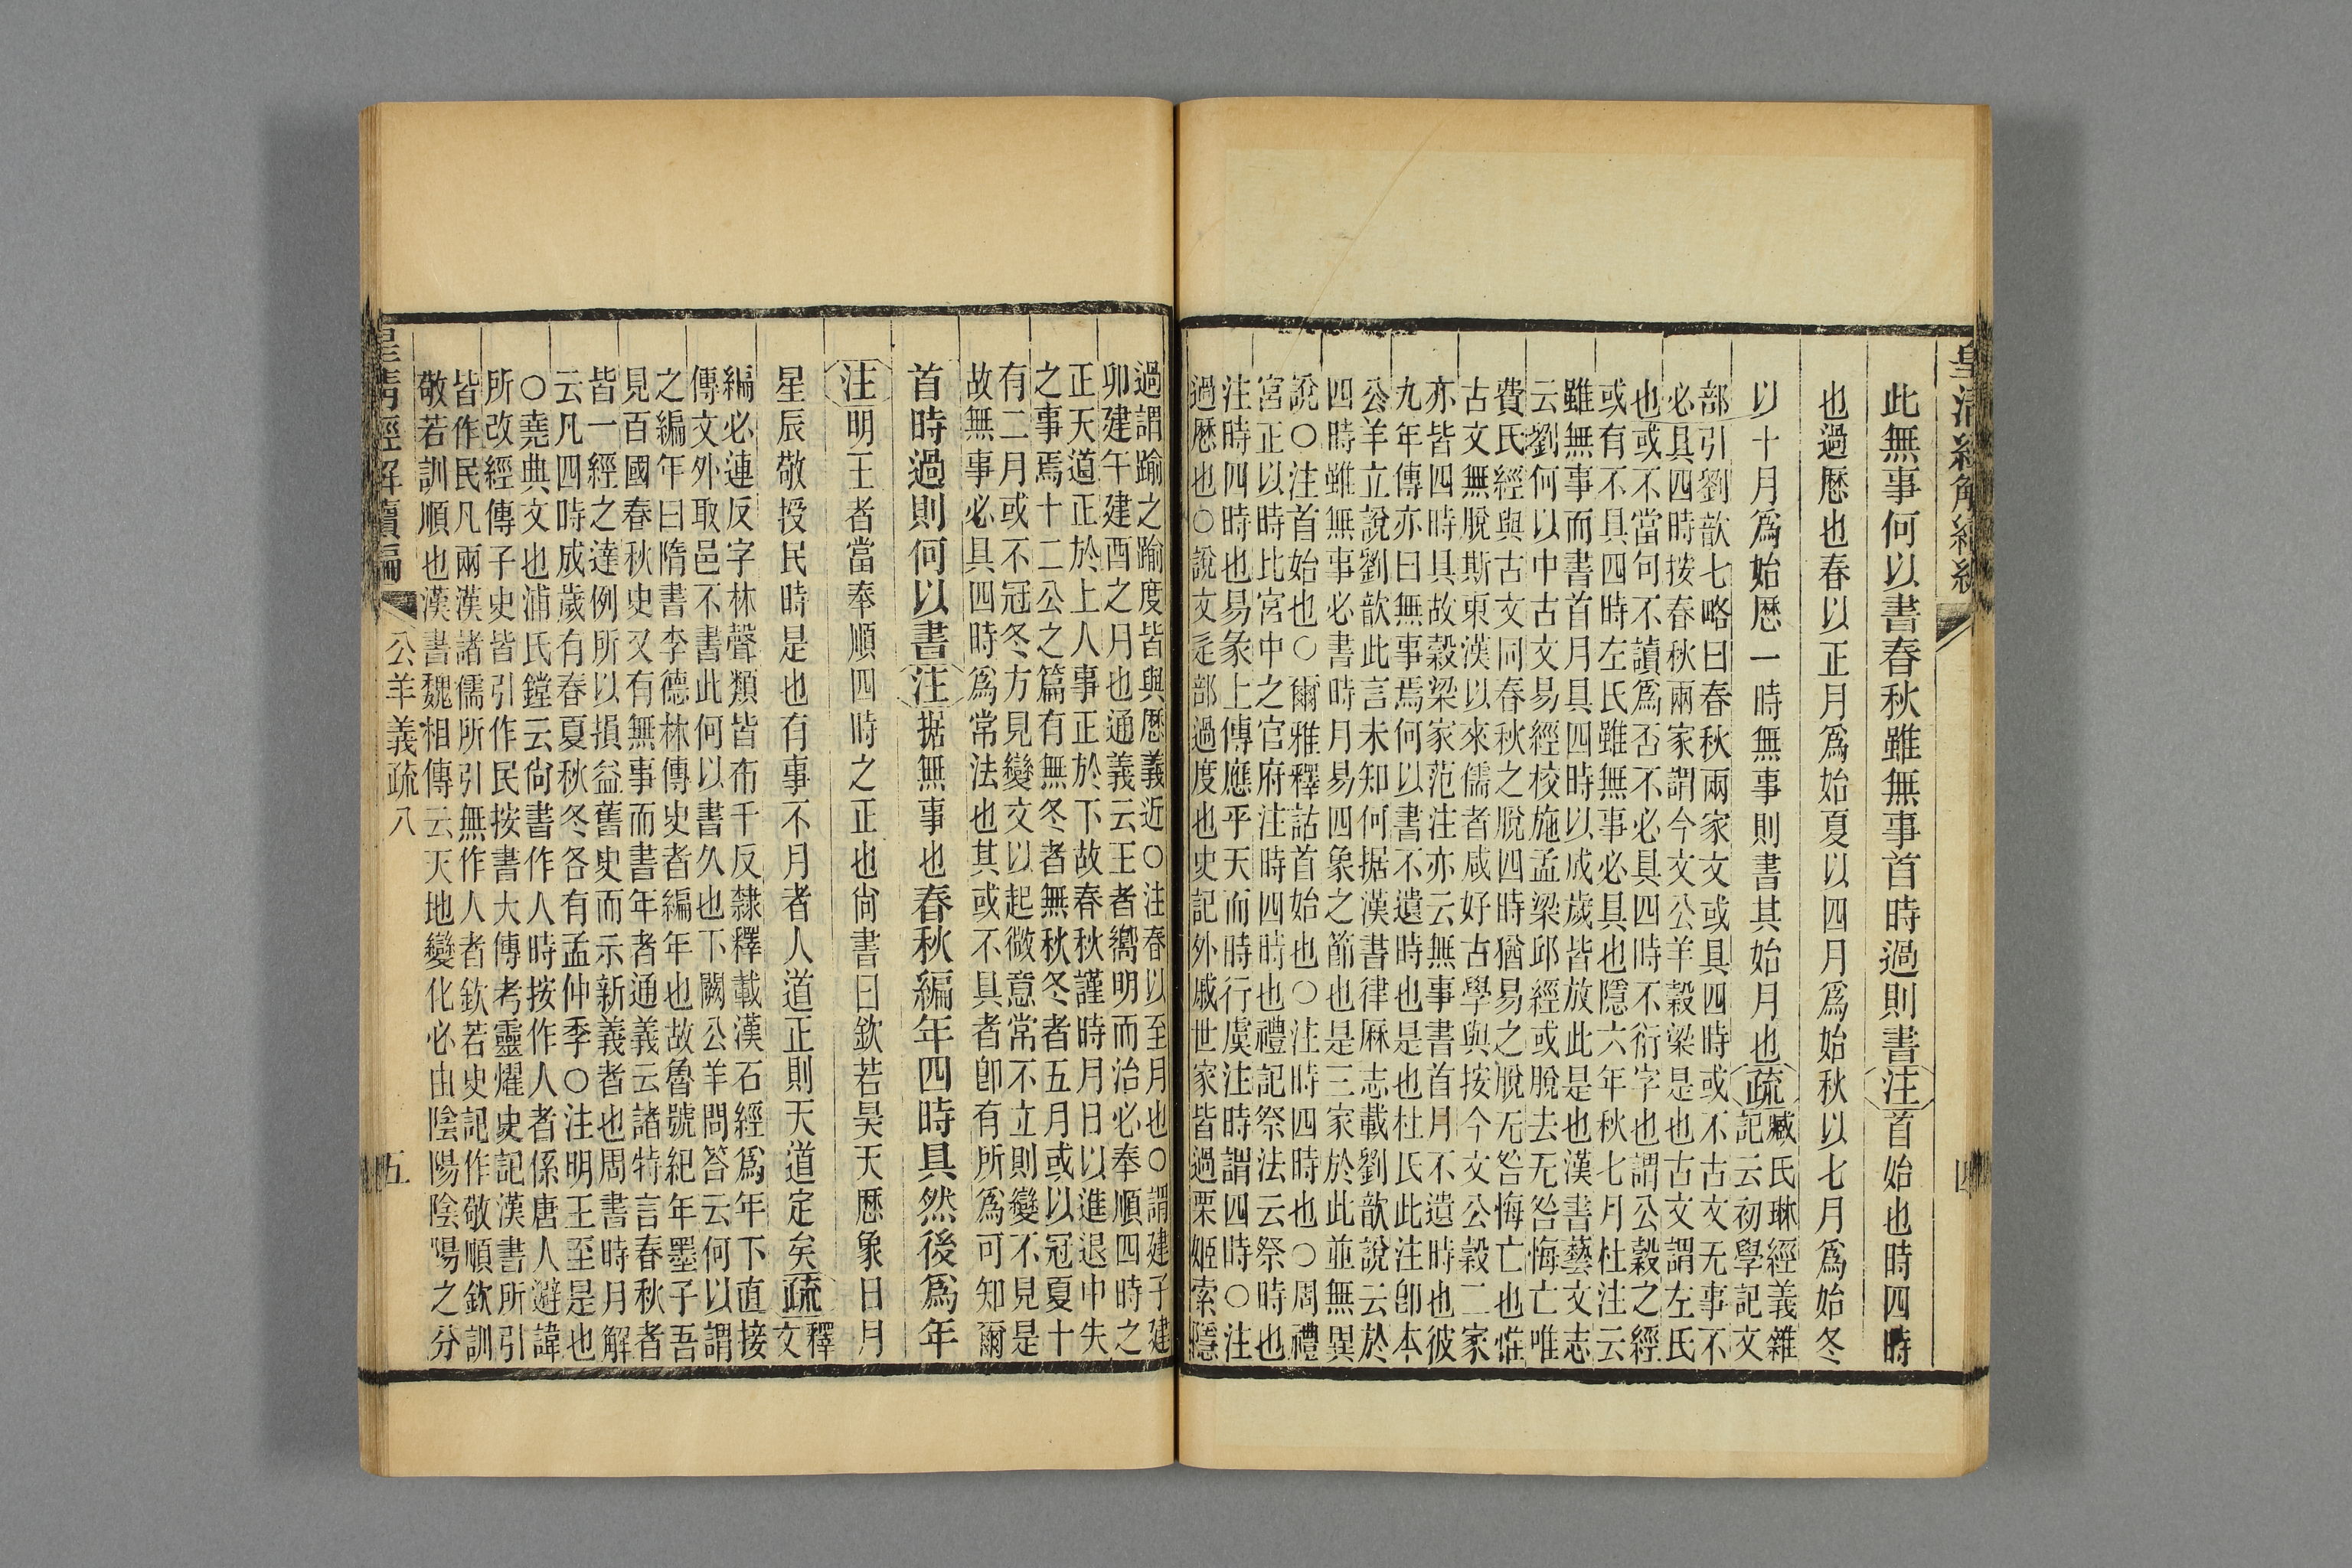 皇清經解續編
四
此無事何以書春秋雖無事首時過則書注首始也時四時
也過歷也春以正月爲始夏以四月爲始秋以七月爲始冬
以十月爲始歷一時無事則書其始月也疏
臧氏琳經義雜
記云初學記文
部引劉歆七略曰春秋兩家文或具四時或不古文无事不
必具四時按春秋兩家謂今文公羊穀梁是也古文謂左氏
也或不當句不讀爲否不必具四時不衍字也謂公穀之經
或有不具四時左氏雖無事必具也隱六年秋七月杜注云
雖無事而書首月具四時以成歲皆放此是也漢書藝文志
云劉何以中古文易經校施孟梁邱經或脫去无咎悔亡唯
費氏經與古文同春秋之脫四時猶易之脫无咎悔亡也惟
古文無脫斯東漢以來儒者咸好古學與按今文公穀二家
亦皆四時具故穀梁家范注亦云無事書首月不遺時也彼
九年傳亦曰無事焉何以書不遺時也是也杜氏此注卽本
公羊立說劉歆此言未知何据漢書律厤志載劉歆說云於
四時雖無事必書時月易四象之節也是三家於此並無異
說○注首始也○爾雅釋詁首始也○注時四時也○周禮
宮正以時比宮中之官府注時四時也禮記祭法云祭時也
注時四時也易彖上傳應乎天而時行虞注時謂四時○注
過歷也○說文辵部過度也史記外戚世家皆過栗姬索隱
過謂踰之踰度皆與歷義近○注春以至月也○謂建子建
卯建午建酉之月也通義云王者嚮明而治必奉順四時之
正天道正於上人事正於下故春秋謹時月日以進退中失
之事焉十二公之篇有無冬者無秋冬者五月或以冠夏十
有二月或不冠冬方見變文以起微意常不立則變不見是
故無事必具四時爲常法也其或不具者卽有所爲可知爾
首時過則何以書注据無事也春秋編年四時具然後爲年
注明王者當奉順四時之正也尙書曰欽若昊天歷象日月
星辰敬授民時是也有事不月者人道正則天道定矣疏
釋
文
編必連反字林聲類皆布千反隸釋載漢石經爲年下直接
傳文外取邑不書此何以書久也下闕公羊問答云何以謂
之編年曰隋書李德林傳史者編年也故魯號紀年墨子吾
見百國春秋史又有無事而書年者通義云諸特言春秋者
皆一經之達例所以損益舊史而示新義者也周書時月解
云凡四時成歲有春夏秋冬各有孟仲季○注明王至是也
○堯典文也浦氏鏜云尙書作人時按作人者係唐人避諱
所改經傳子史皆引作民按書大傳考靈燿史記漢書所引
皆作民凡兩漢諸儒所引無作人者欽若史記作敬順欽訓
敬若訓順也漢書魏相傳云天地變化必由陰陽陰陽之分
皇清經解續編
公羊義疏八
五